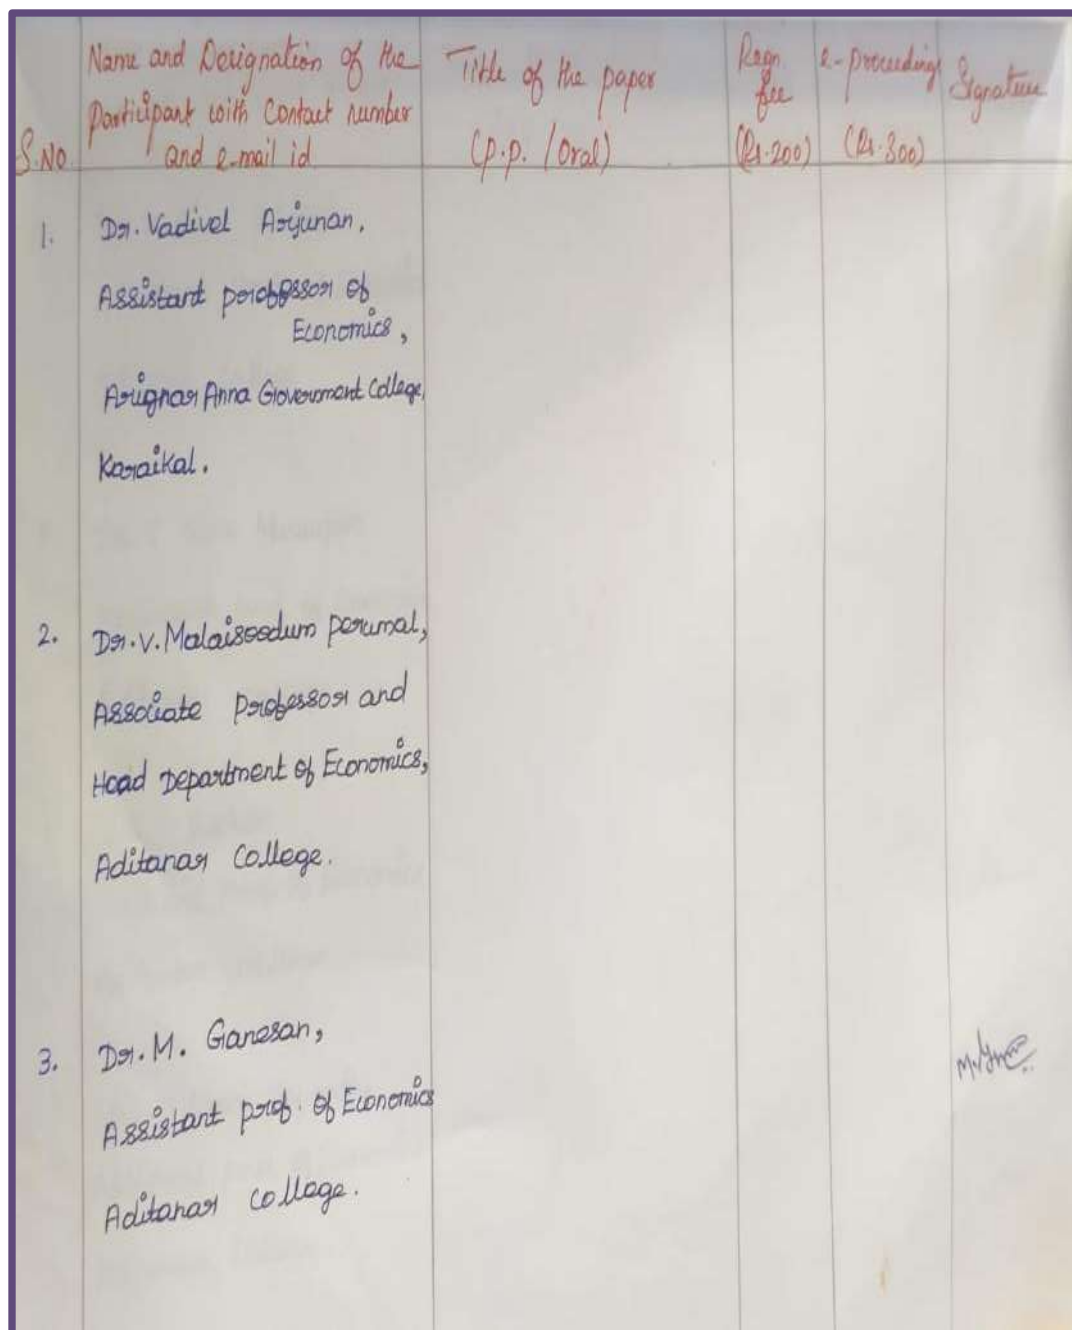 S.NO.
Name and Designation of the
Participant with Contact number
and e-mail id
Title of the paper
(P.P. / Oral)
Regn.
fee
(Rs.200)
e-proceeding
(Rs.300)
Signature
1.
Dr. Vadivel Arjunan,
Assistant professor of
Economics,
Arignar Anna Government College,
Karaikal.
2.
Dr. V. Malaisoodum perumal,
Associate Professor and
Head Department of Economics,
Aditanar College.
3.
Dr. M. Ganesan,
Assistant prof. of Economics
Aditanar College.